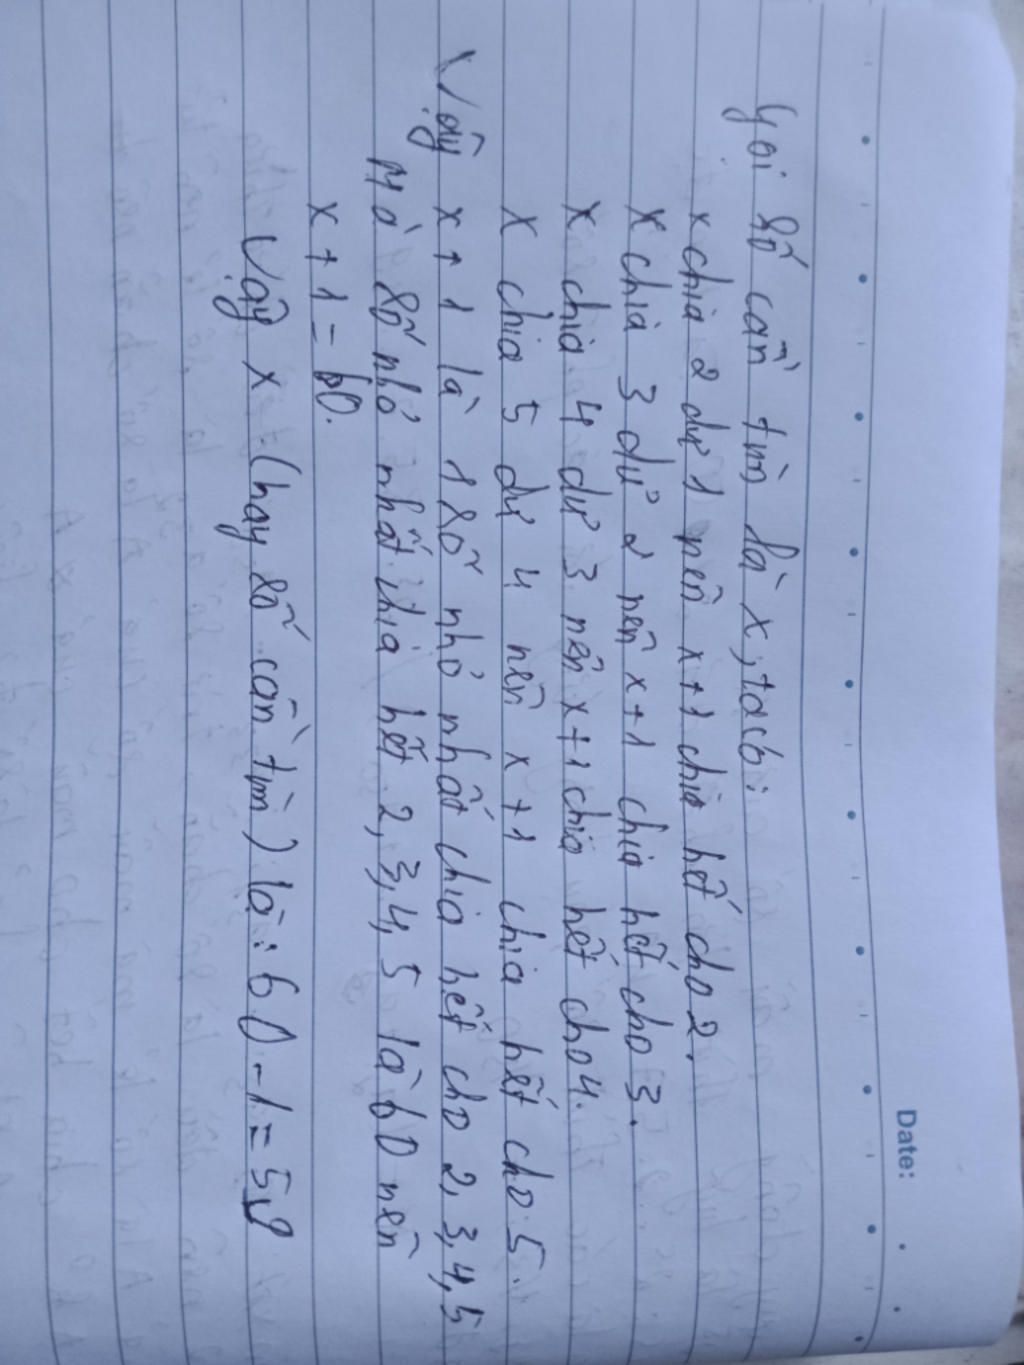 Date:
Gọi số cần tìm là x, ta có:
x chia 2 dư 1 nên x+1 chia hết cho 2.
x chia 3 dư 2 nên x+1 chia hết cho 3.
x chia 4 dư 3 nên x+1 chia hết cho 4.
x chia 5 dư 4 nên x+1 chia hết cho 5.
Vậy x+1 là 1 số nhỏ nhất chia hết cho 2,3,4,5
Mà số nhỏ nhất chia hết 2,3,4,5 là 60 nên
x+1=60.
Vậy x (hay số cần tìm) là: 60-1=59